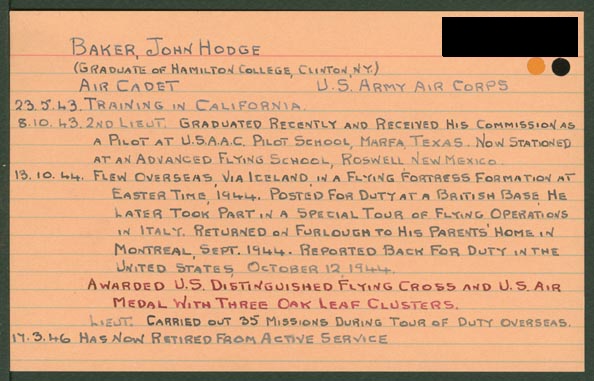 BAKER, JOHN HODGE
(GRADUATE OF HAMILTON COLLEGE, CLINTON, N.Y.)
AIR CADET U.S. ARMY AIR CORPS
23.5.43. TRAINING IN CALIFORNIA.
8.10.43. 2ND LIEUT. GRADUATED RECENTLY AND RECEIVED HIS COMMISSION AS
A PILOT AT U.S.A.A.C. PILOT SCHOOL, MARFA, TEXAS. NOW STATIONED
AT AN ADVANCED FLYING SCHOOL, ROSWELL NEW MEXICO.
13.10.44. FLEW OVERSEAS, VIA ICELAND, IN A FLYING FORTRESS FORMATION AT
EASTER TIME, 1944. POSTED FOR DUTY AT A BRITISH BASE, HE
LATER TOOK PART IN A SPECIAL TOUR OF FLYING OPERATIONS
IN ITALY. RETURNED ON FURLOUGH TO HIS PARENTS' HOME IN
MONTREAL, SEPT. 1944. REPORTED BACK FOR DUTY IN THE
UNITED STATES, OCTOBER 12, 1944.
AWARDED U.S. DISTINGUISHED FLYING CROSS AND U.S. AIR
MEDAL WITH THREE OAK LEAF CLUSTERS.
LIEUT. CARRIED OUT 35 MISSIONS DURING TOUR OF DUTY OVERSEAS.
17.3.46 HAS NOW RETIRED FROM ACTIVE SERVICE